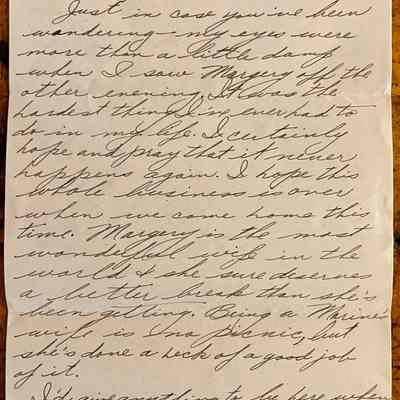 Just in case you've been
wondering - my eyes were
more than a little damp
when I saw Margery off the
other evening. It was the
hardest thing I'm ever had to
do in my life. I certainly
hope and pray that it never
happens again. I hope this
whole business is over
when we come home this
time. Margery is the most
wonderful wife in the
world & she sure deserves
a better break than she's
been getting. Being a Marine's
wife is no picnic, but
she's done a heck of a good job
of it.
I'd give anything to be here when